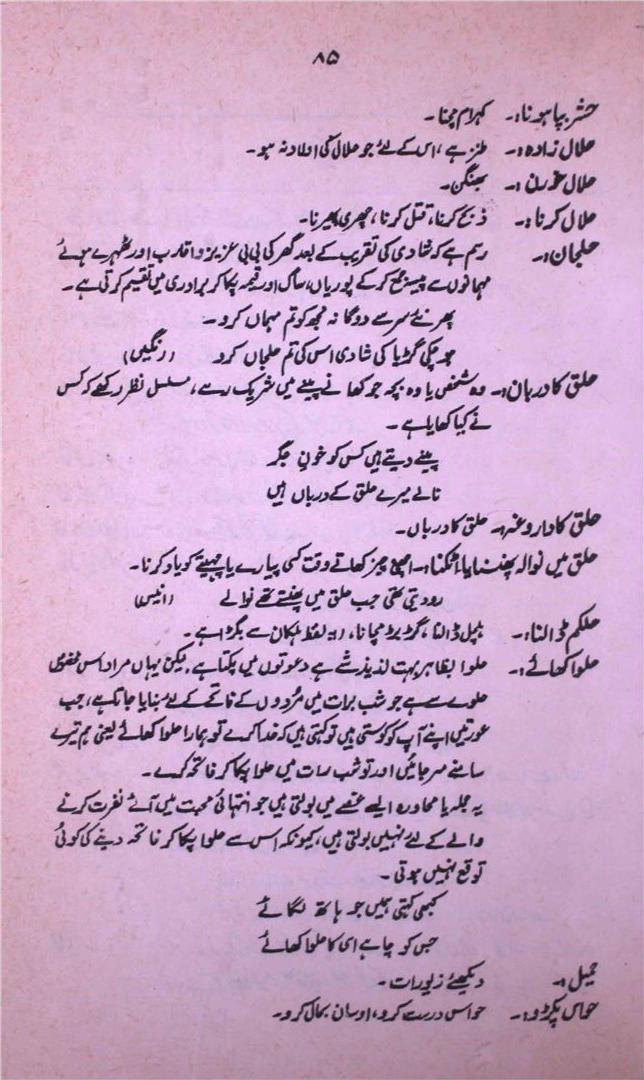 ۸۵
حشر بپا ہونا:۔ کہرام مچنا۔
حلال زادہ:۔ طنز ہے، اس کے لئے جو حلال کی اولاد نہ ہو۔
حلال خورن:۔ بھنگن۔
حلال کرنا:۔ ذبح کرنا، قتل کرنا، چھری پھیرنا۔
حلجان:۔ رسم ہے کہ شادی کی تقریب کے بعد گھر کی بی بی عزیز و اقارب اور ٹھہرے ہوئے
مہمانوں سے پیسے جمع کر کے پوریاں، ساگ اور قیمہ پکا کر برادری میں تقسیم کرتی ہے۔
پھر نئے سر سے دوگانہ مجھ کو تم مہماں کرو۔
ہو چکی گڑیا کی شادی اس کی تم حلجاں کرو (رنگیں)
حلق کا دربان:۔ وہ شخص یا وہ بچہ جو کھانے پینے میں شریک رہے، مسلسل نظر رکھے کہ کس
نے کیا کھایا ہے۔
پینے دیتے ہیں کس کو خونِ جگر
نالے میرے حلق کے درباں ہیں
حلق کا داروغہ:۔ حلق کا درباں۔
حلق میں نوالہ پھنسنا یا اٹکنا:۔ اچھی چیز کھاتے وقت کسی پیارے یا چہیتے کو یاد کرنا۔
رو دیتی تھی جب حلق میں پھنستے تھے نوالے (انیس)
حلکم ڈالنا:۔ ہلچل ڈالنا، گڑبڑ مچانا، (یہ لفظ ہلکان سے بگڑا ہے۔
حلوا کھائے:۔ حلوا بظاہر بہت لذیذ شے ہے دعوتوں میں پکتا ہے لیکن یہاں مراد اس
حلوے سے ہے جو شب برات میں مُردوں کے فاتحے کے لئے بنایا جاتا ہے، جب
عورتیں اپنے آپ کو کوستی ہیں تو کہتی ہیں کہ خدا کرے تو ہمارا حلوا کھائے یعنی ہم تیرے
سامنے مر جائیں اور تو شب رات میں حلوا پکا کر فاتحہ کرے۔
یہ جملہ یا محاورہ ایسے غصے میں بولتی ہیں جو انتہائی محبت میں آئے نفرت کرنے
والے کے لئے نہیں بولتی ہیں، کیونکہ اس سے حلوا پکا کر فاتحہ دینے کی کوئی
توقع نہیں ہوتی۔
کبھی کہتی ہیں جو ہاتھ لگائے
جس کو چاہے اسی کا حلوا کھائے
حمیل:۔ دیکھئے زیورات۔
حواس پکڑو:۔ حواس درست کرو، اوسان بحال کرو۔